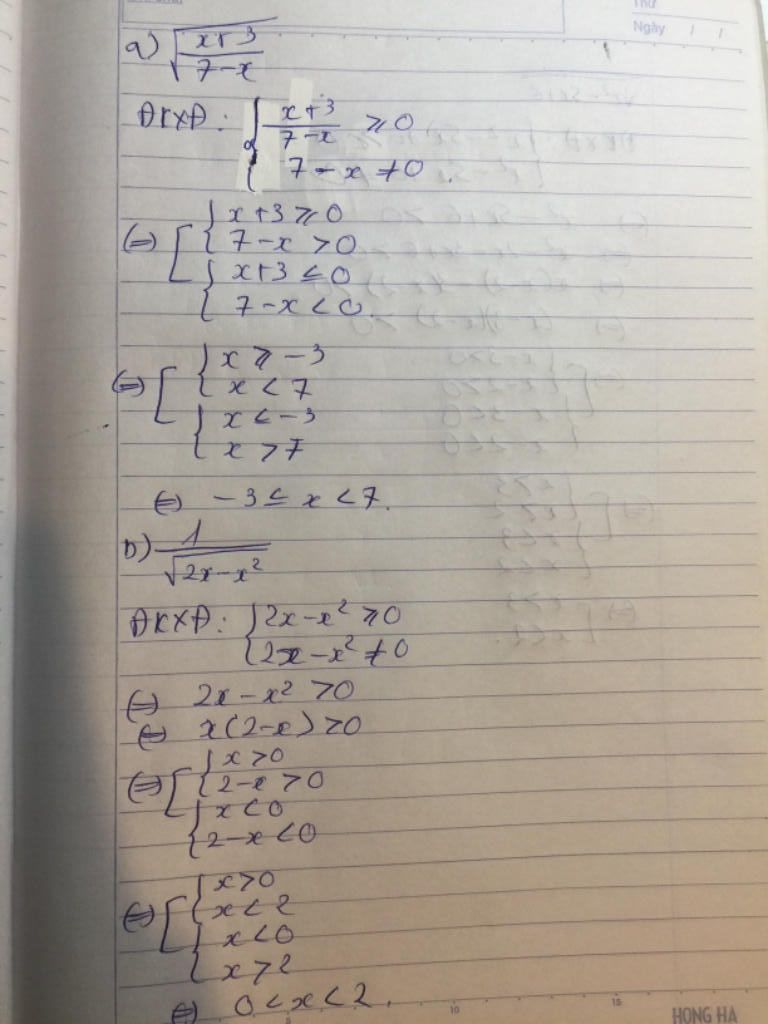 Thứ
Ngày / /
a) √((x+3)/(7-x))
ĐKXĐ: { (x+3)/(7-x) ≥ 0
7-x ≠ 0.
(=) [ { x+3 ≥ 0
7-x > 0
{ x+3 ≤ 0
7-x < 0
(=) [ { x ≥ -3
x < 7
{ x < -3
x > 7
(=) -3 ≤ x < 7.
b) 1/√(2x-x²)
ĐKXĐ: { 2x-x² ≥ 0
2x-x² ≠ 0
(=) 2x-x² > 0
(=) x(2-x) > 0
(=) [ { x > 0
2-x > 0
{ x < 0
2-x < 0
(=) [ { x > 0
x < 2
{ x < 0
x > 2
(=) 0 < x < 2.
10 15
HONG HA